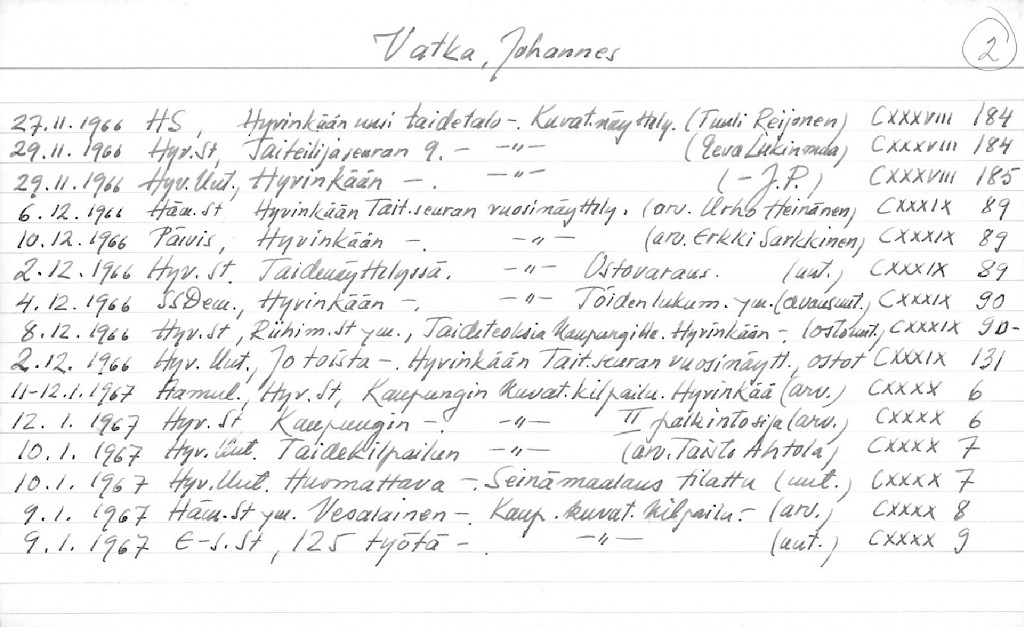 Vatka, Johannes 2
27.11.1966 HS, Hyvinkään uusi taidetalo -. Kuvat.näyttely. (Tuuli Reijonen) CXXXVIII 184
29.11.1966 Hyv.St, Taiteilijaseuran 9. - -"- (Eeva Lukinmaa) CXXXVIII 184
29.11.1966 Hyv.Uut., Hyvinkään -. -"- (-J.P.) CXXXVIII 185
6.12.1966 Häm.St Hyvinkään Tait.seuran vuosinäyttely. (arv. Urho Heinänen) CXXXIX 89
10.12.1966 Päivis, Hyvinkään -. -"- (arv. Erkki Sarkkinen) CXXXIX 89
2.12.1966 Hyv.St. Taidenäyttelyssä. -"- Ostovaraus. (uut.) CXXXIX 89
4.12.1966 SSDem., Hyvinkään -. -"- Töiden lukum. ym. (avausuut.) CXXXIX 90
8.12.1966 Hyv.St, Riihim.St ym., Taideteoksia kaupungille. Hyvinkään - (ostouut.) CXXXIX 90-
2.12.1966 Hyv.Uut., Jo toista -. Hyvinkään Tait.seuran vuosinäytt., ostot CXXXIX 131
11-12.1.1967 Aamul., Hyv.St, Kaupungin kuvat.kilpailu. Hyvinkää (arv.) CXXXX 6
12.1.1967 Hyv.St. Kaupungin -. -"- II palkintosija (arv.) CXXXX 6
10.1.1967 Hyv.Uut. Taidekilpailun -"- (arv. Taisto Ahtola) CXXXX 7
10.1.1967 Hyv.Uut. Huomattava -. Seinämaalaus tilattu (uut.) CXXXX 7
9.1.1967 Häm.St ym. Vesalainen -. Kaup. kuvat. kilpailu. - (arv.) CXXXX 8
9.1.1967 E-S.St, 125 työtä -. -"- (uut.) CXXXX 9